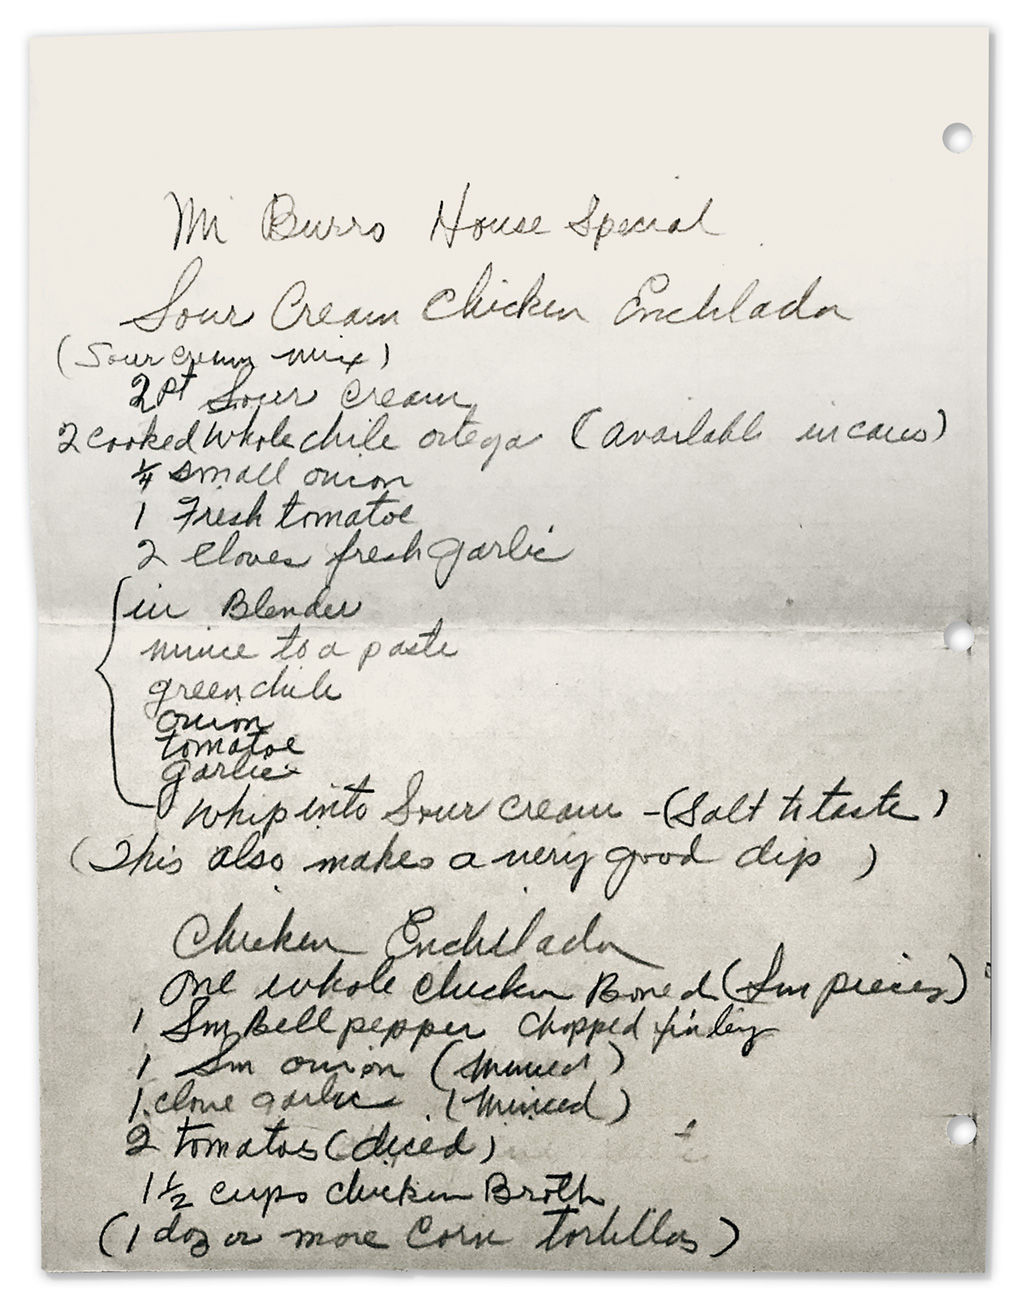 Mi Burro House Special
Sour Cream Chicken Enchilada
(Sour cream mix)
2 Pt Sour Cream
2 cooked whole chile ortega (available in cans)
1/4 small onion
1 Fresh tomatoe
2 cloves fresh garlic
in Blender
mince to a paste
green chile
onion
tomatoe
garlic
whip into Sour cream - (Salt to taste)
(This also makes a very good dip)
Chicken Enchilada
One whole chicken Boned (Sm pieces)
1 Sm Bell pepper chopped finley
1 Sm onion (minced)
1 clove garlic (minced)
2 tomatos (diced)
1 1/2 cups chicken Broth
(1 doz or more Corn tortillas)